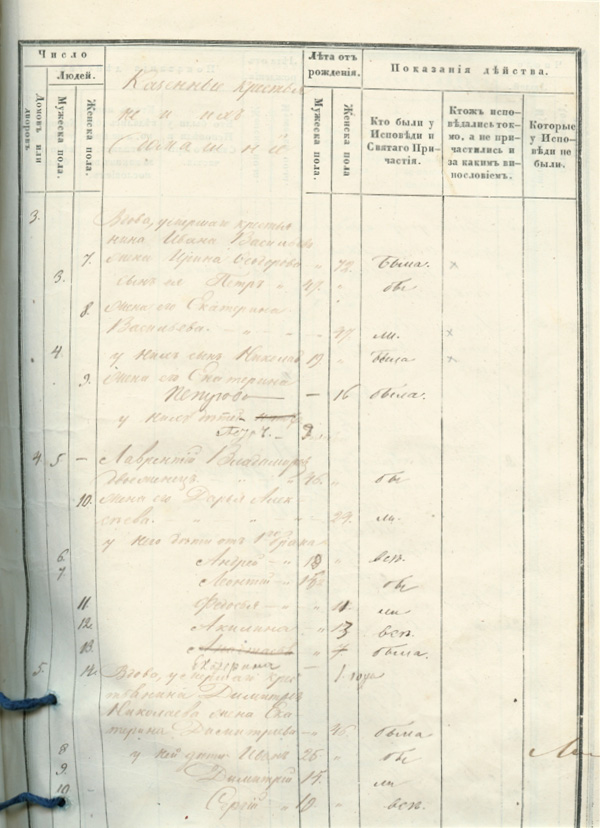 Число
Людей.
Домовъ или дворовъ.
Мужеска пола.
Женска пола.
Казенные крестья
не и ихъ
Лѣта отъ рожденія.
Мужеска пола.
Женска пола.
Показанія дѣйства.
Кто были у Исповѣди и Святаго Причастія.
Ктожъ исповѣдались токмо, а не причастились и за какимъ винословіемъ.
Которые у Исповѣди не были.
3.
Вдова, умершаго крестья
нина Ивана Васильева
7. жена Ирина Ѳедорова " 72. была.
3. сынъ ея Петръ " 47. " бы
8. жена его Екатерина
Васильева. 47. ли.
4. у нихъ сынъ Николай 19 " была
9. жена его Екатерина
Петрова — 16 была.
у нихъ дѣти
Петръ.
4. 5 — Лаврентій Владиміровъ
46. " бы
10. жена его Дарья Алек
сѣева. 29. ли.
у него дѣти отъ 1го брака
6. Андрей 18 " всѣ.
7 " бы
11. Ѳедосья " 11 ли
12. Акилина " 13 всѣ.
13. была.
Екатерина — 1 года
5. 14. Вдова, умершаго крес
тьянина Димитрія
Николаева жена Ека
терина Дмитріева " 46 была
8 у ней дѣти Иванъ 26 " бы
9. Димитрій 14. ли
10 Сергій " 10 " всѣ.